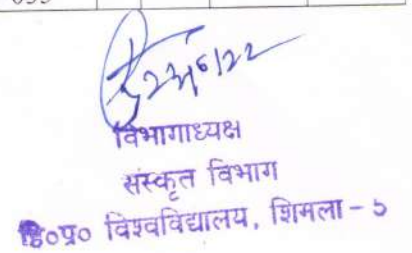 विभागाध्यक्ष
संस्कृत विभाग
हि०प्र० विश्वविद्यालय, शिमला - ५